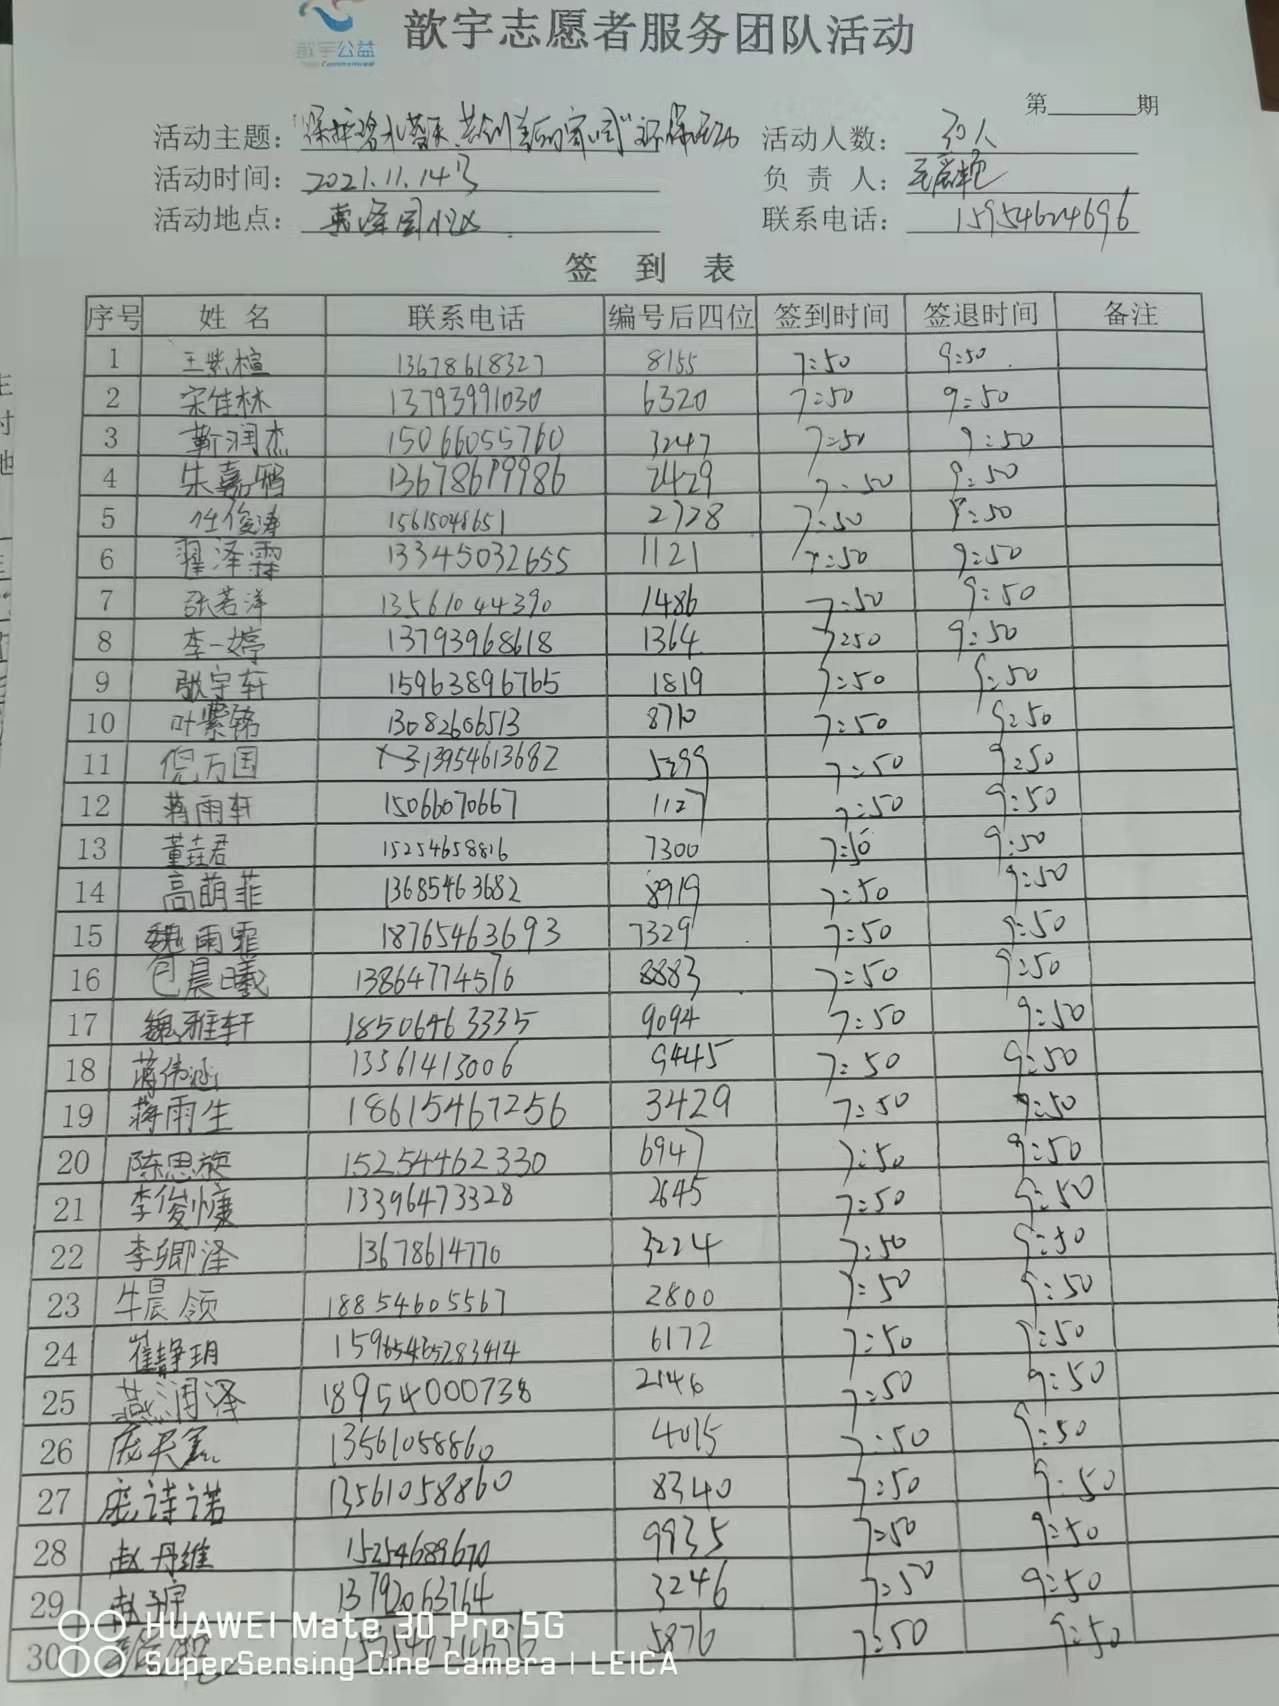 歆宇公益
歆宇志愿者服务团队活动
第 期
活动主题： 活动人数：30人
活动时间：2021.11.14日 负责人：
活动地点： 联系电话：15954624696
签到表
序号 姓名 联系电话 编号后四位 签到时间 签退时间 备注
1 王紫楦 13678618327 8155 7:50 9:50
2 宋佳林 13793991030 6320 7:50 9:50
3 靳润杰 15066055760 3247 7:50 9:50
4 朱嘉 13678619986 2429 7:50 9:50
5 任俊涛 15615048651 2728 7:50 9:50
6 翟泽霖 13345032655 1121 7:50 9:50
7 张若洋 13561044390 1486 7:50 9:50
8 李一婷 13793968618 1364 7:50 9:50
9 张宇轩 15963896765 1819 7:50 9:50
10 叶紫锦 13082606513 8710 7:50 9:50
11 倪万国 13954613682 5299 7:50 9:50
12 蒋雨轩 15066070667 1127 7:50 9:50
13 董垚君 15254658816 7300 7:50 9:50
14 高萌菲 13685463682 8919 7:50 9:50
15 魏雨霏 18765463693 7329 7:50 9:50
16 包晨曦 13864774576 8883 7:50 9:50
17 魏雅轩 18506463335 9094 7:50 9:50
18 蒋伟涵 13561413006 9445 7:50 9:50
19 蒋雨生 18615467256 3429 7:50 9:50
20 陈思璇 15254462330 6947 7:50 9:50
21 李俊慷 13396473328 2645 7:50 9:50
22 李卿泽 13678614770 3224 7:50 9:50
23 牛晨领 18854605567 2800 7:50 9:50
24 崔静玥 6172 7:50 9:50
25 燕润泽 18954000738 2146 7:50 9:50
26 庞天 13561058860 4015 7:50 9:50
27 庞诗诺 13561058860 8340 7:50 9:50
28 赵丹维 15254689670 9935 7:50 9:50
29 赵子宇 13792063764 3246 7:50 9:50
30 5876 7:50 9:50
HUAWEI Mate 30 Pro 5G
SuperSensing Cine Camera | LEICA